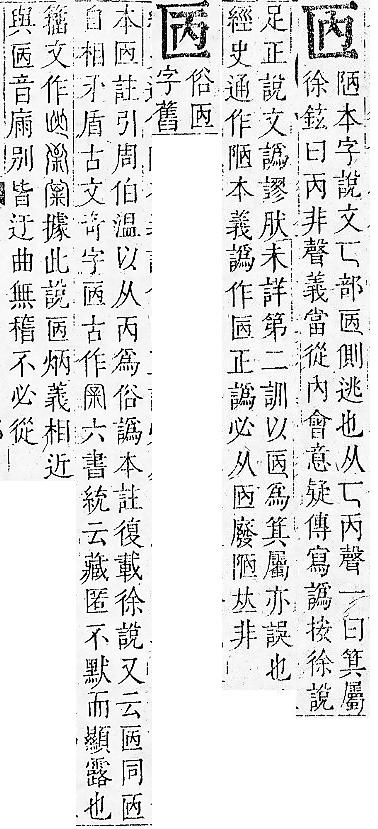 陋本字說文匸部㔷側逃也从匸丙聲一曰箕屬
徐鉉曰丙非聲義當從內會意疑傳寫譌按徐說
足正說文譌謬肰未詳第二訓以㔷爲箕屬亦誤也
經史通作陋本義譌作㔷正譌必从廢陋𠀤非
㔷
俗
字舊
本㔷註引周伯溫以从丙爲俗譌本註復載徐說又云㔷同
自相矛盾古文奇字㔷古作六書統云藏匿不默而顯露也
籒文作據此說㔷炳義相近
與㔷音別皆迂曲無稽不必從